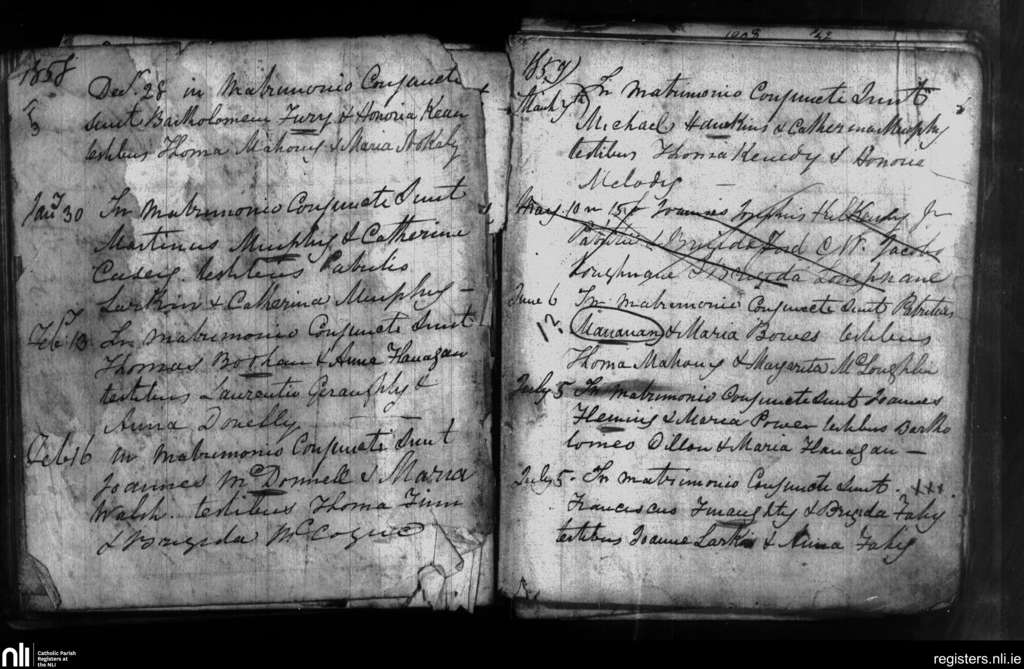 1858
Decr. 28 in Matrimonio Conjuncti
sunt Bartholomeus Fury & Honoria Kean
testibus Thoma Mahony & Maria
Jany 30 In Matrimonio Conjuncti Sunt
Martinus Murphy & Catherine
Casey testibus
Larkin & Catherina Murphy —
Feby 13 In Matrimonio Conjuncti Sunt
Thomas & Anna Flanagan
testibus Laurentio Geraughty &
Anna Donelly
Feb 16 in Matrimonio Conjuncti Sunt
Joannes McDonnell & Maria
Walsh testibus Thoma Finn
& Brigida
1859
March 7th In Matrimonio Conjuncti Sunt
Michael Hawkins & Catherina Murphy
testibus Thoma Kenedy & Honoria
Melody —
May 10 Joannes
& Brigida Ford
& Brigida
June 6 In Matrimonio Conjuncti Sunt Patritius
12 Mananan & Maria Bowes testibus
Thoma Mahony & Margarita McLoughlin
July 5 In Matrimonio Conjuncti Sunt Joannes
Fleming & Maria Power testibus Bartho
lomeo Dillon & Maria Flanagan —
July 5 In Matrimonio Conjuncti Sunt
Franciscus Finaughty & Brigida Fahy
testibus Joanne Larkin & Anna Fahy
nli Catholic Parish
Registers at
the NLI
registers.nli.ie